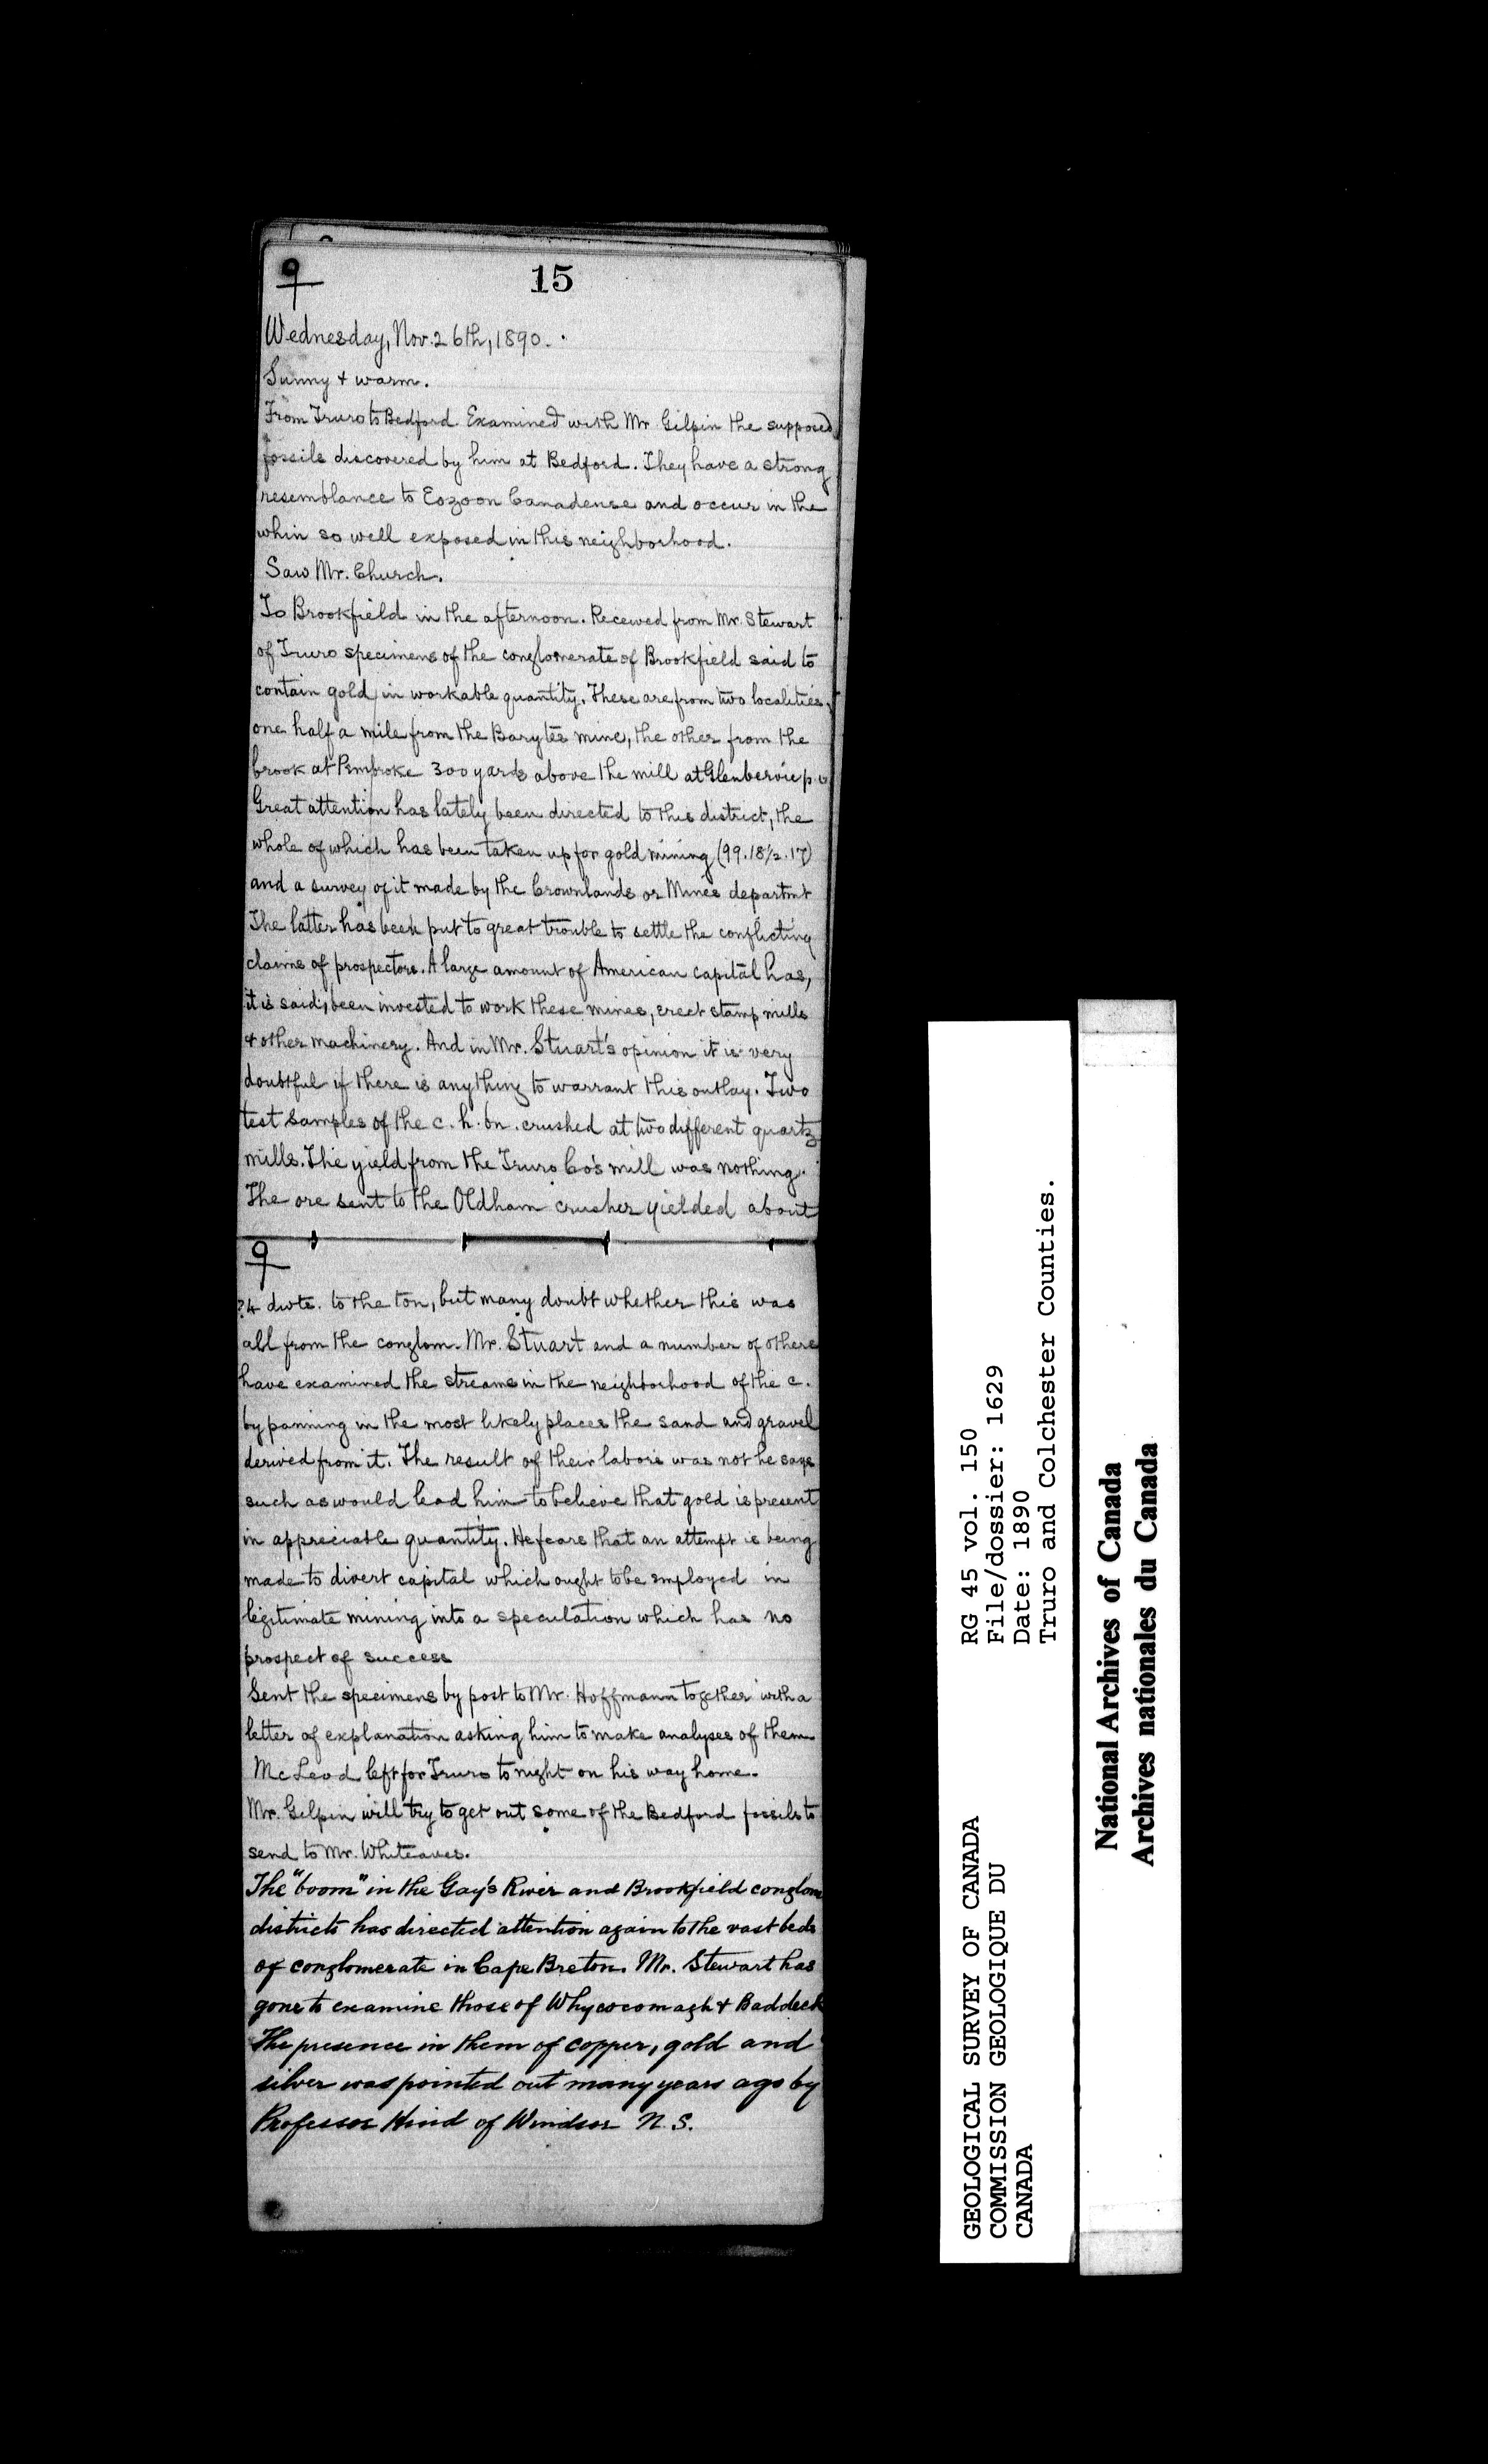 9
15
Wednesday, Nov. 26th, 1890.
Sunny & warm.
From Truro to Bedford. Examined with Mr. Gilpin the supposed
fossils discovered by him at Bedford. They have a strong
resemblance to Eozoon Canadense and occur in the
whin so well exposed in this neighborhood.
Saw Mr. Church.
To Brookfield in the afternoon. Received from Mr. Stewart
of Truro specimens of the conglomerate of Brookfield said to
contain gold in workable quantity. These are from two localities,
one half a mile from the Barytes mine, the other from the
brook at Pembroke 300 yards above the mill at Glenbervie p.o
Great attention has lately been directed to this district, the
whole of which has been taken up for gold mining (99.18½.17)
and a survey of it made by the Crownlands or Mines departmt
The latter has been put to great trouble to settle the conflicting
claims of prospectors. A large amount of American capital has,
it is said, been invested to work these mines, erect stamp mills
& other machinery. And in Mr. Stuart's opinion it is very
doubtful if there is anything to warrant this outlay. Two
test samples of the c. h. bn. crushed at two different quartz
mills. The yield from the Truro Co's mill was nothing.
The ore sent to the Oldham crusher yielded about
9
?4 dwts. to the ton, but many doubt whether this was
all from the conglom. Mr. Stuart and a number of others
have examined the streams in the neighborhood of the c.
by panning in the most likely places the sand and gravel
derived from it. The result of their labors was not he says
such as would lead him to believe that gold is present
in appreciable quantity. He fears that an attempt is being
made to divert capital which ought to be employed in
legitimate mining into a speculation which has no
prospect of success
Sent the specimens by post to Mr. Hoffmann together with a
letter of explanation asking him to make analyses of them
McLeod left for Truro to night on his way home.
Mr. Gilpin will try to get out some of the Bedford fossils to
send to Mr. Whiteaves.
The "boom" in the Gay's River and Brookfield conglom
districts has directed attention again to the vast beds
of conglomerate in Cape Breton. Mr. Stewart has
gone to examine those of Whycocomagh & Baddeck
The presence in them of copper, gold and
silver was pointed out many years ago by
Professor Hind of Windsor N.S.
GEOLOGICAL SURVEY OF CANADA
COMMISSION GEOLOGIQUE DU
CANADA
RG 45 vol. 150
File/dossier: 1629
Date: 1890
Truro and Colchester Counties.
National Archives of Canada
Archives nationales du Canada